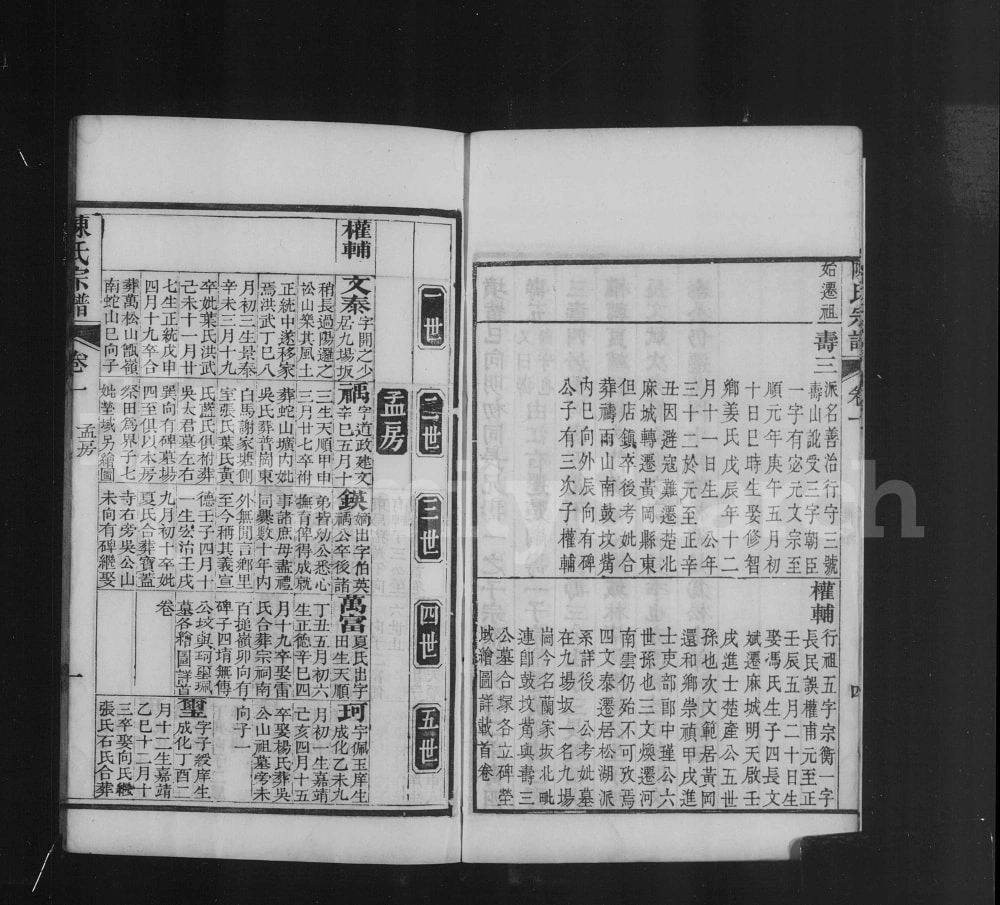 始遷祖
壽三
派名善治行守三號
壽山訛受三字朝臣
一字有宓元文宗至
順元年庚午五月初
十日巳時生娶修智
鄉姜氏戊辰年十二
月十一日生公卒年
三十二於元至正辛
丑因避寇難遷楚北
麻城轉遷黃岡縣東
但店鐵卒後考妣合
葬禱雨山南鼓坟觜
內巳向外卯向有碑
公子有三次子權輔
權輔
行祖五字宗衡一字
長民誤權甫元至正
壬辰五月二十日生
娶馮氏生子四長文
斌遷麻城明天啟壬
戌進士楚產公五世
孫也次文範居黃岡
還和鄉崇禎甲戌進
士吏部郎中瑾公六
世孫也三文煥遷河
南雲仍殆不可攷焉
四文泰遷居松湖派
系詳後 公考妣墓
在九場坂一名九場
崗今名蘭家坂北毗
連卽鼓坟觜與壽三
公墓合塚各立碑塋
域繪圖詳載首卷
一世
二世
三世
四世
五世
孟房
權輔
文泰
字開之少
居九場坂
稍長過陽邏之
松山樂其風土
正統中遂移家
焉洪武丁巳八
月初三生景泰
辛未三月十九
卒妣葉氏洪武
己未十一月廿
七生正統戊申
四月十九卒合
葬萬松山㦸嶺
南蛇山巳向子
禑
字道政建文
辛巳五月十
三生天順甲申
三月廿七卒祔
葬蛇山壙內妣
吳氏葬普崗東
白馬謝家塘側
室張氏葉氏黃
氏藍氏俱祔葬
吳太君墓左右
巽向有碑墓場
四至俱以本房
祭田為界子七
姓塋域另繪圖
鍈
嫡出字伯英
禑公卒後諸
弟皆幼公悉心
撫育俾得成就
事諸庶母盡禮
同爨數十年內
外無閒言鄉里
至今稱其義宣
德壬子四月十
一生宏治壬戌
九月初十卒妣
夏氏合葬寶蓋
寺右旁吳公山
未向有碑繼娶
萬富
夏氏出字
田生天順
丁丑五月初六
生正德辛巳四
月十九卒娶雷
氏合葬宗祠南
百搥嶺卯向有
碑子四墳無傳
公坟與珂璽珮
墓各繪圖詳首
卷
珂
字佩玉庠生
成化乙未九
月初一生嘉靖
己亥四月十五
卒娶楊氏葬吳
公山祖墓旁未
向子一
璽
字子綬庠生
成化丁酉二
月十二生嘉靖
乙巳十二月十
三卒娶向氏繼
張氏石氏合葬
陳氏宗譜
卷一
孟房
一